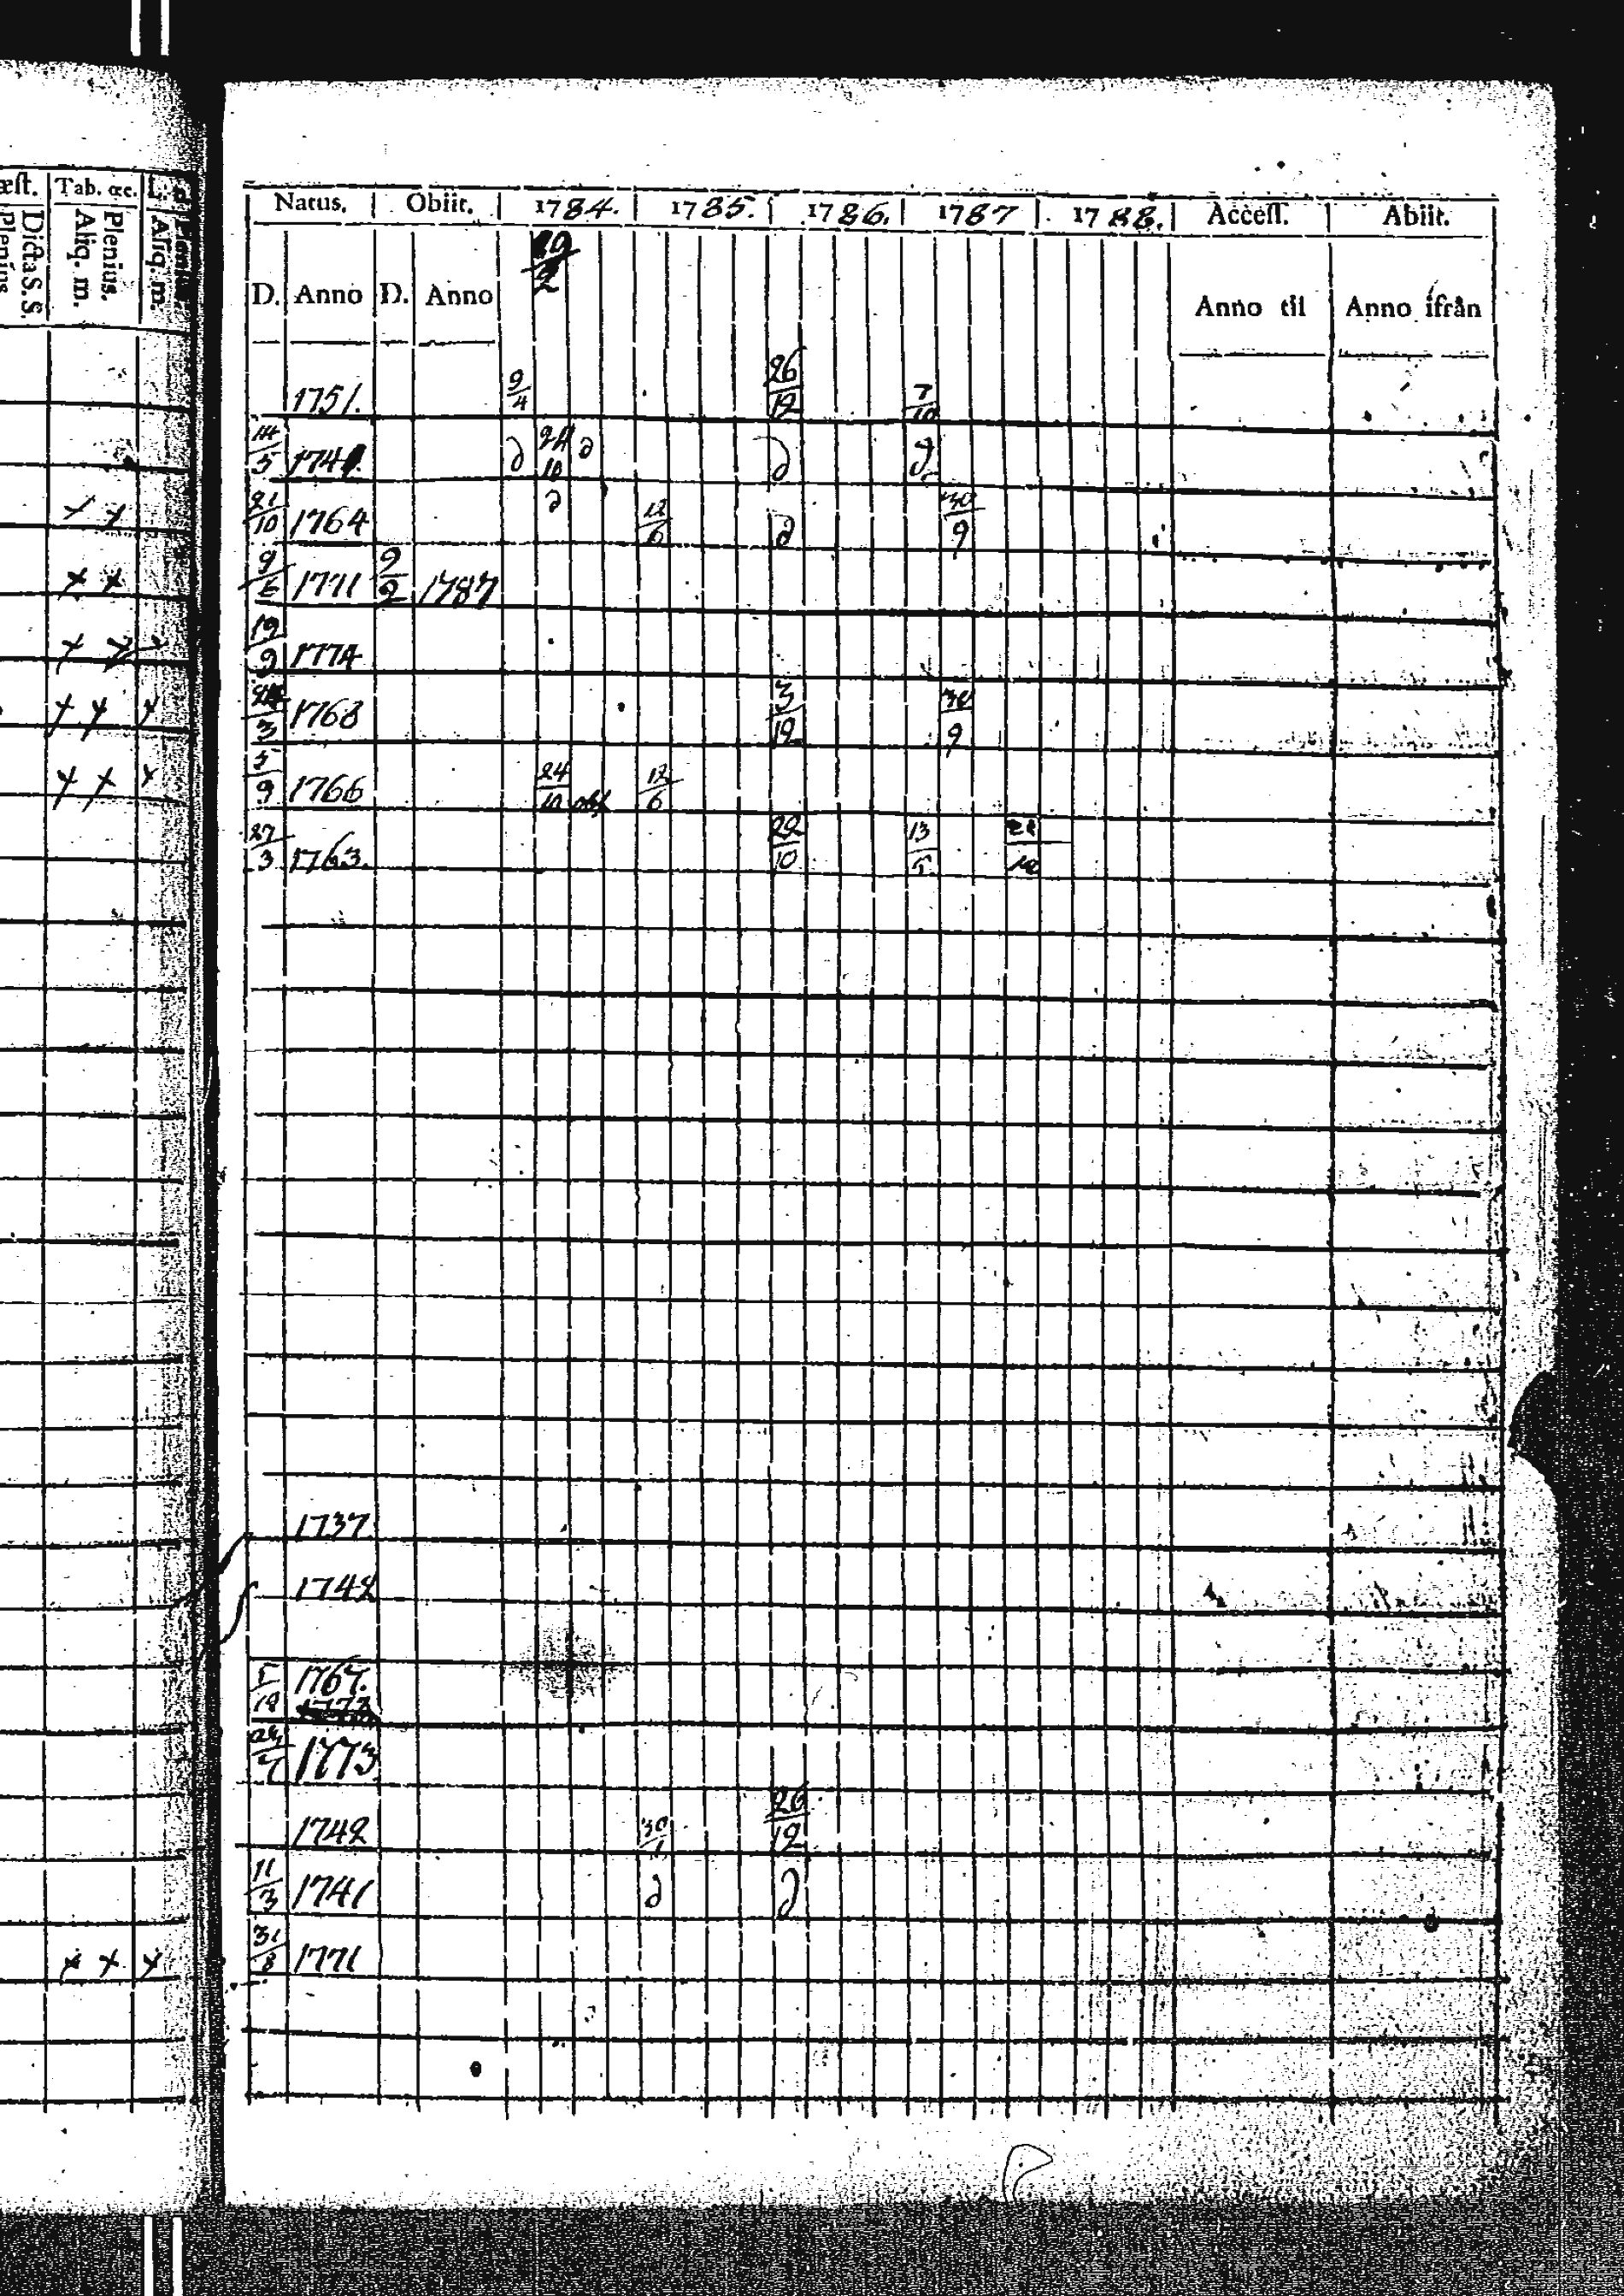 æſt. Tab. œc. L.
Plenius
Dicta S. S.
Aliq. m.
Plenius.
Aliq. m.
Natus. Obiit. 1784. 1785. 1786. 1787 1788. Acceſſ. Abiit.
D. Anno D. Anno Anno til Anno ifrån
1751. 9/4 26/12 7/10
14/5 174 ∂ 24/10 ∂ ∂ ∂
21/10 1764 ∂ 12/6 ∂ 30/9
9/6 1771 9/2 1787
19/9 1774
24/3 1768 3/12 30/9
5/9 1766 24/10 abs 12/6
27/3 1763. 22/10 13/5
1737
1742
5/12 1767.
1773
1742 30/1 26/12
11/3 1741 ∂ ∂
31/8 1771
x x
x x
x x x
x x x
x x x
x x x